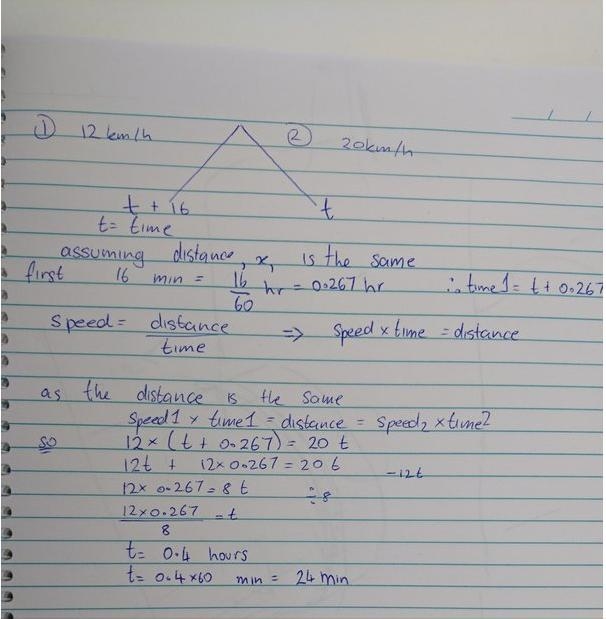 ① 12 km/h ② 20km/h
t + 16 t
t = time
assuming distance, x, is the same
first 16 min = 16/60 hr = 0.267 hr ∴ time 1 = t + 0.267
Speed = distance/time ⇒ Speed × time = distance
as the distance is the same
Speed1 × time1 = distance = speed2 × time2
so 12 × (t + 0.267) = 20 t
12t + 12 × 0.267 = 20 t -12t
12 × 0.267 = 8 t ÷8
12 × 0.267/8 = t
t = 0.4 hours
t = 0.4 × 60 min = 24 min